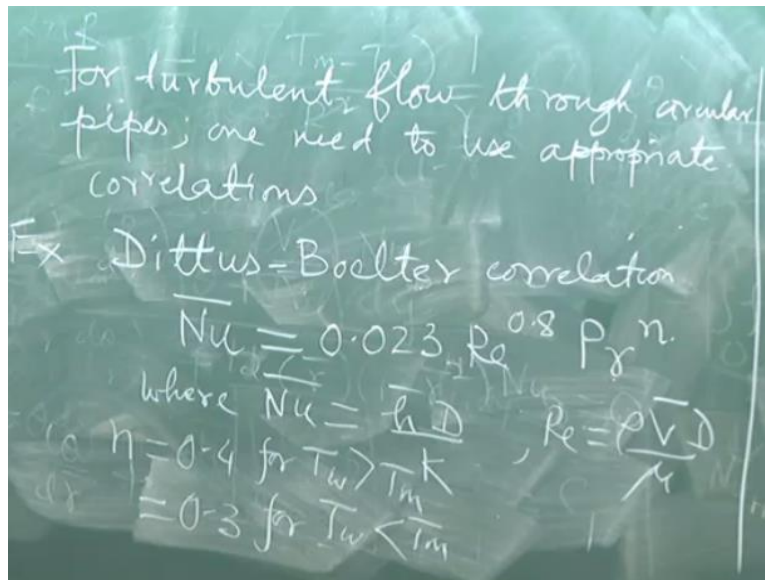 For turbulent flow through circular
pipes, one need to use appropriate
correlations
Ex Dittus-Boelter correlation
N̅u̅ = 0.023 Re^0.8 Pr^n.
where N̅u̅ = h̅D/k, Re = ρV̅D/μ
n = 0.4 for Tw > Tm
= 0.3 for Tw < Tm